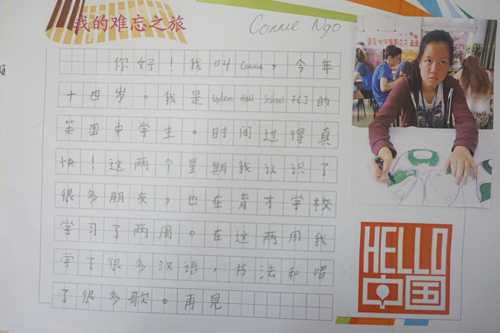 我的难忘之旅
Connie Ngo
你好！我叫 Connie，今年
十四岁。我是 Upton Hall School FCJ 的
英国中学生。时间过得真
快！这两个星期我认识了
很多朋友，也在育才学校
学习了两周。在这两周我
学了很多汉语，书法和唱
了很多歌。再见
HELLO
中国